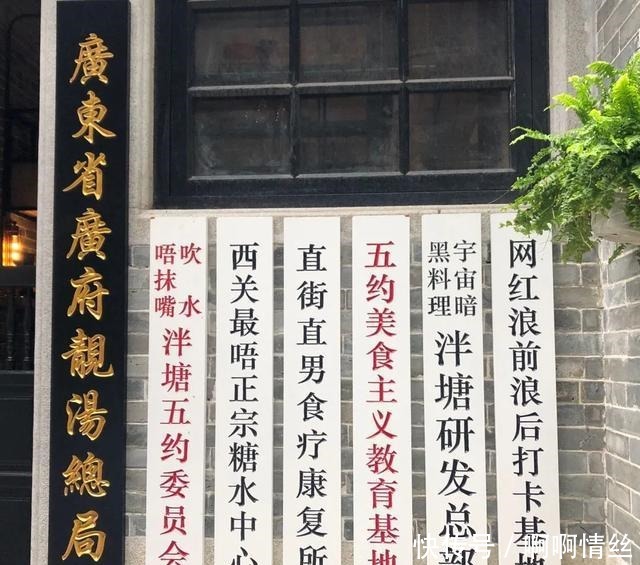 廣東省廣府靚湯總局
吹水
唔抹嘴
泮塘五约委员会
西关最唔正宗糖水中心
直街直男食疗康复所
五约美食主义教育基地
宇宙暗
黑料理
泮塘研发总部
网红浪前浪后打卡基地
快传号 / 啊啊情丝